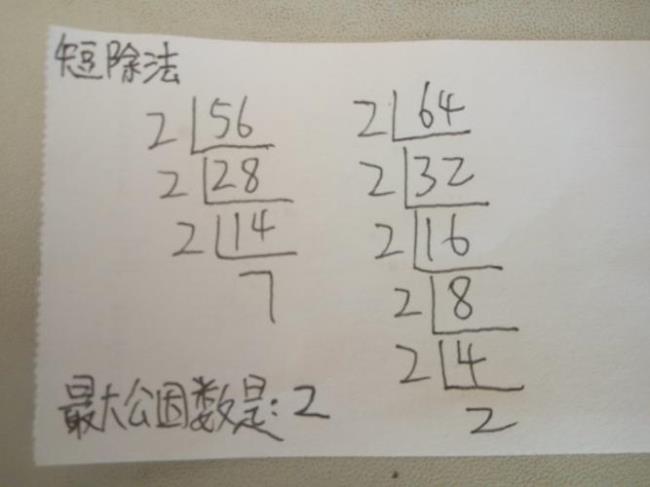 短除法
2 56
2 28
2 14
7
2 64
2 32
2 16
2 8
2 4
2
最大公因数是:2